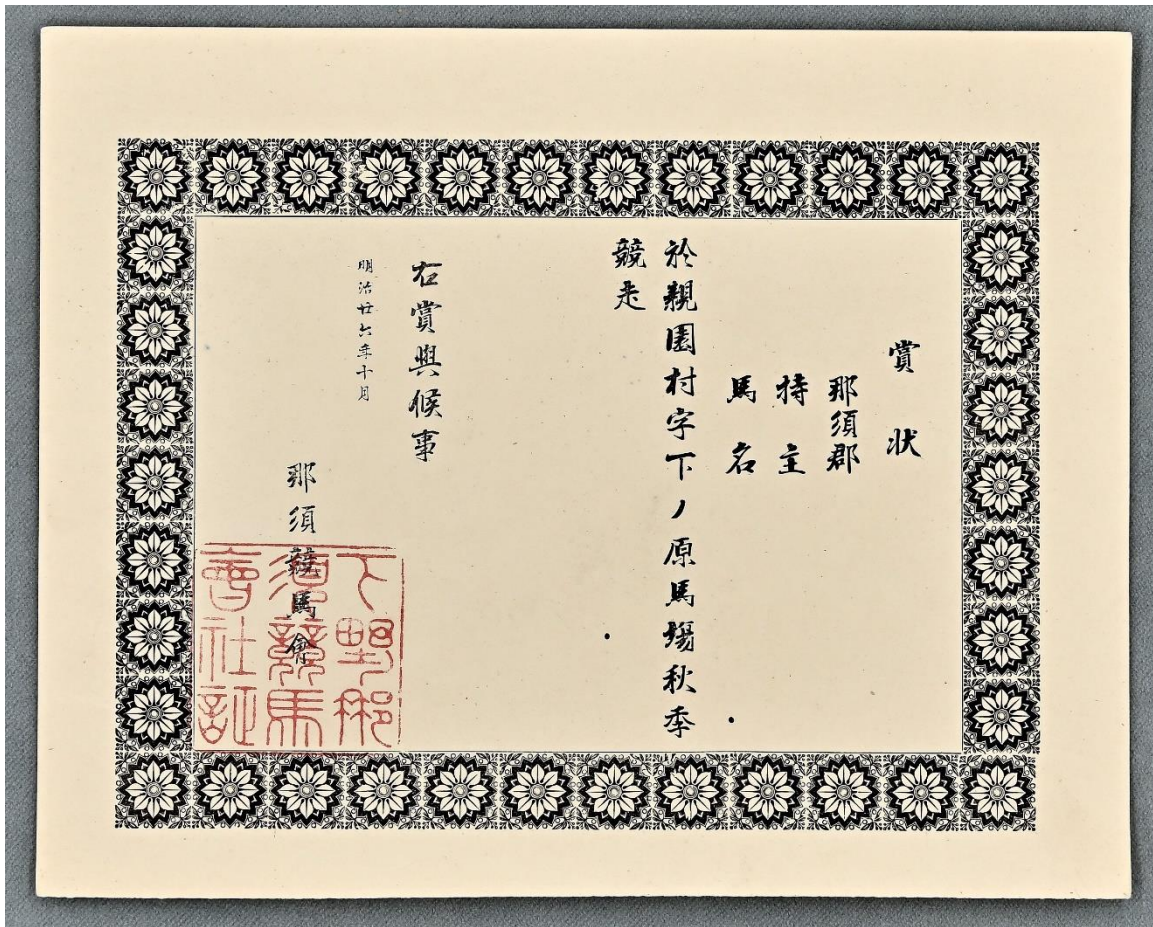 賞状
那須郡
持主
馬名
於親園村字下ノ原馬場秋季
競走
右賞與候事
明治廿六年十月
那須競馬會
下野那
須競馬
會社証